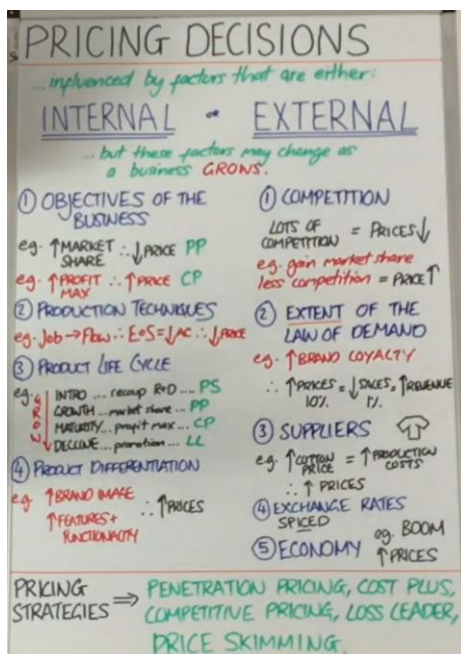 PRICING DECISIONS
...influenced by factors that are either:
INTERNAL or EXTERNAL
...but these factors may change as
a business GROWS.
① OBJECTIVES OF THE
BUSINESS
eg. ↑MARKET
SHARE ∴ ↓PRICE PP
eg. ↑PROFIT
MAX ∴ ↑PRICE CP
② PRODUCTION TECHNIQUES
eg. Job → Flow ∴ EoS = ↓AC ∴ ↓PRICE
③ PRODUCT LIFE CYCLE
eg. GROW
INTRO ... recoup R+D .... PS
GROWTH... market share... PP
MATURITY... profit max... CP
DECLINE... promotion.... LL
④ PRODUCT DIFFERENTIATION
eg ↑BRAND IMAGE
↑FEATURES +
FUNCTIONALITY
∴ ↑PRICES
① COMPETITION
LOTS OF
COMPETITION = PRICES↓
e.g. gain market share
less competition = PRICE↑
② EXTENT OF THE
LAW OF DEMAND
eg. ↑BRAND LOYALTY
∴ ↑PRICES = ↓SALES, ↑REVENUE
10% 1%
③ SUPPLIERS
eg ↑COTTON
PRICE = ↑PRODUCTION
COSTS
∴ ↑ PRICES
④ EXCHANGE RATES
SPICED
⑤ ECONOMY eg. BOOM
↑PRICES
PRICING
STRATEGIES ⇒
PENETRATION PRICING, COST PLUS,
COMPETITIVE PRICING, LOSS LEADER,
PRICE SKIMMING.